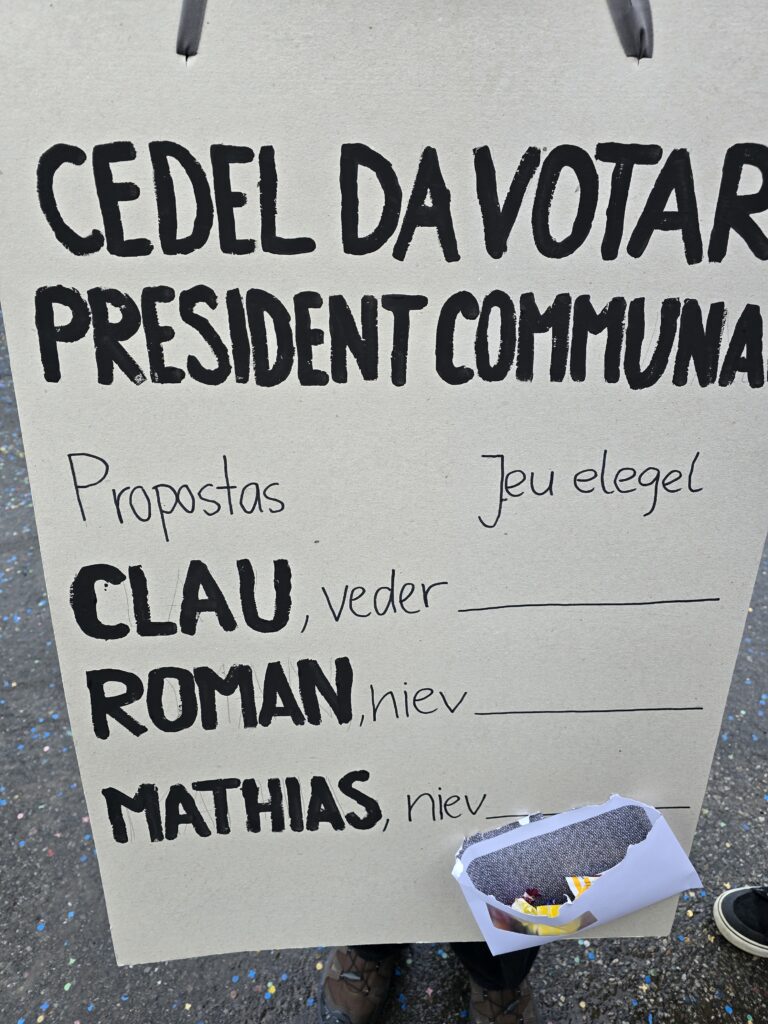 CEDEL DA VOTAR
PRESIDENT COMMUNA
Propostas Jeu elegel
CLAU, veder
ROMAN, niev
MATHIAS, niev